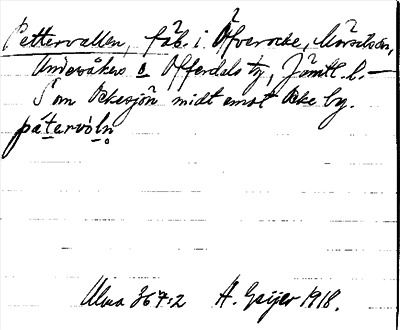 Pettervallen, fäb. i Öfverocke, Mörsil sn,
Undersåkers o Offerdals tg, Jämtl. l. –
S om Ockesjön midt emot Ocke by.
pätervóln
Ulma 367:2 H. Geijer 1918.